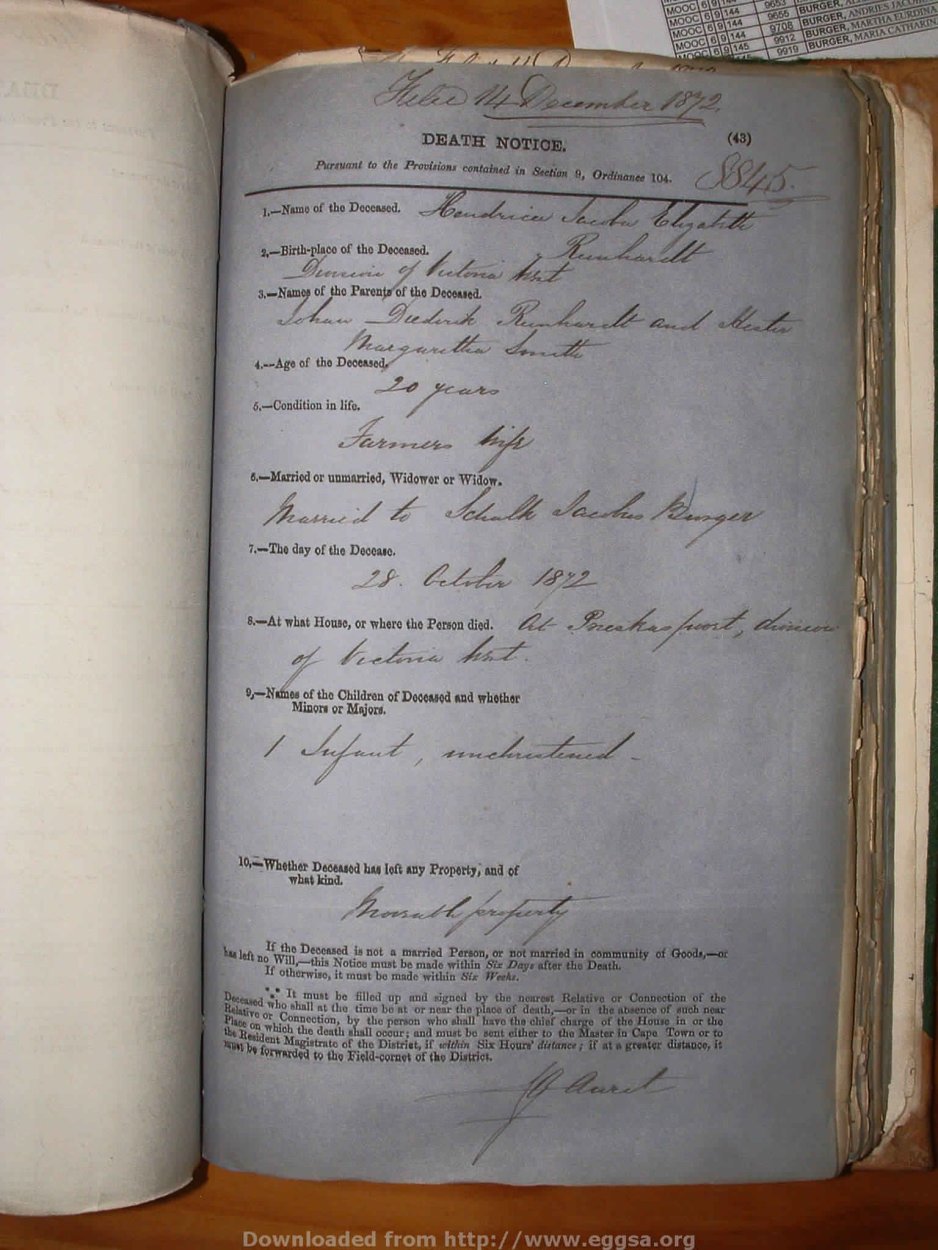 MOOC 6 9 144 9653
MOOC 6 9 144 9655 BURGER, ANDRIES
MOOC 6 9 144 9708 BURGER, MARTHA
MOOC 6 9 145 9912 BURGER, MARIA CATHARIN
9919
Filed 14 December 1872.
DEATH NOTICE. (43)
Pursuant to the Provisions contained in Section 9, Ordinance 104.
8845.
1,—Name of the Deceased. Hendrica Jacoba Elizabeth
Reinhardt
2,—Birth-place of the Deceased.
Division of Victoria West
3,—Names of the Parents of the Deceased.
Johan Diederik Reinhardt and Hester
Margaretha Smith
4,—Age of the Deceased,
20 years
5,—Condition in life.
Farmers wife
6,—Married or unmarried, Widower or Widow.
Married to Schalk Jacobus Burger
7,—The day of the Decease.
28. October 1872
8,—At what House, or where the Person died. At Prieskaspoort, division
of Victoria West.
9,—Names of the Children of Deceased and whether
Minors or Majors.
1 Infant, unchristened -
10,—Whether Deceased has left any Property, and of
what kind.
Moveable property
If the Deceased is not a married Person, or not married in community of Goods,—or
has left no Will,—this Notice must be made within Six Days after the Death.
If otherwise, it must be made within Six Weeks.
*** It must be filled up and signed by the nearest Relative or Connection of the
Deceased who shall at the time be at or near the place of death,—or in the absence of such near
Relative or Connection, by the person who shall have the chief charge of the House in or the
Place on which the death shall occur; and must be sent either to the Master in Cape Town or to
the Resident Magistrate of the District, if within Six Hours' distance; if at a greater distance, it
must be forwarded to the Field-cornet of the District.
Auret
Downloaded from http://www.eggsa.org